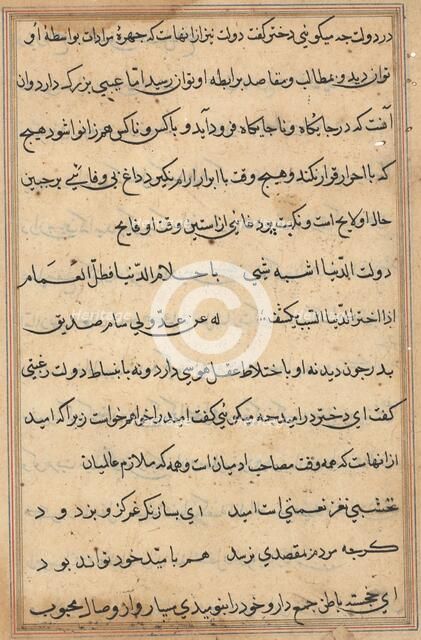 در دولت چه میکوئی دختر کفت دولت نیز از انهاست که چهرهٔ مرادات بواسطهٔ او
توان دید و بمطالب و مقاصد برابطه او توان رسید اما عیبی بزرک دارد و ان
آنست که در جایکاه و ناجایکاه فرود آید و با کس و ناکس همزانو شود هیچ
که با احرار قرار نکند و هیچ وقت با ابرار ارام نکیرد داغ بی وفائی بر جبین
حال او لایح است و نکهت بی وفائی از استین وقت او فایح
دولت الدنیا اشبه شیٔ باحلام الدنیا فظل الغمام
اذا اختبر الدنیا لبیب تکشفت له عن عدو فی ثیاب صدیق
پدر چون دید نه او باختلاط عقل هوسی دارد و نه بانبساط دولت رغبتی
کفت ای دختر در امید چه میکوئی کفت امید را خواهم خواست زیرا که امید
از انهاست که همه وقت مصاحب ادمیان است و همه که ملازم عالمیان
نخشبی نغز نعمتی است امید ای بسا رنک غم کزو بزدود
کرچه مردم بمقصدی نرسد هم بامید خود تواند بود
ای خجسته باطن جمع دار و خود را بنومیدی مسپار و از وصال محبوب
Heritage